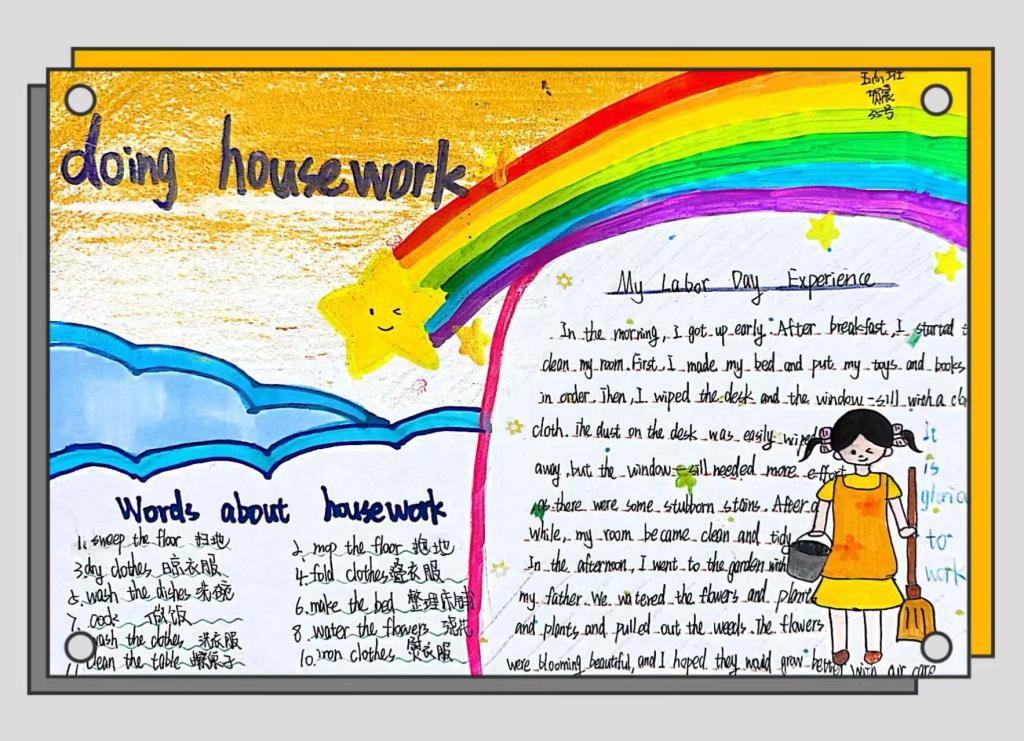 五(6)班
35号
doing housework
My Labor Day Experience
In the morning, I got up early. After breakfast, I started
clean my room. First, I made my bed and put my toys and books
in order. Then, I wiped the desk and the window-sill with a
cloth. The dust on the desk was easily wiped
away, but the window-sill needed more effort
as there were some stubborn stains. After a
while, my room became clean and tidy
In the afternoon, I went to the garden with
my father. We watered the flowers and plants
and plants and pulled out the weeds. The flowers
were blooming beautiful, and I hoped they would grow better with our care
It
is
to
work
Words about housework
1. sweep the floor 扫地
2. mop the floor 拖地
3. dry clothes 晾衣服
4. fold clothes 叠衣服
5. wash the dishes 洗碗
6. make the bed 整理床铺
7. cook 做饭
8. water the flowers 浇花
wash the clothes 洗衣服
10. iron clothes 熨衣服
clean the table 擦桌子